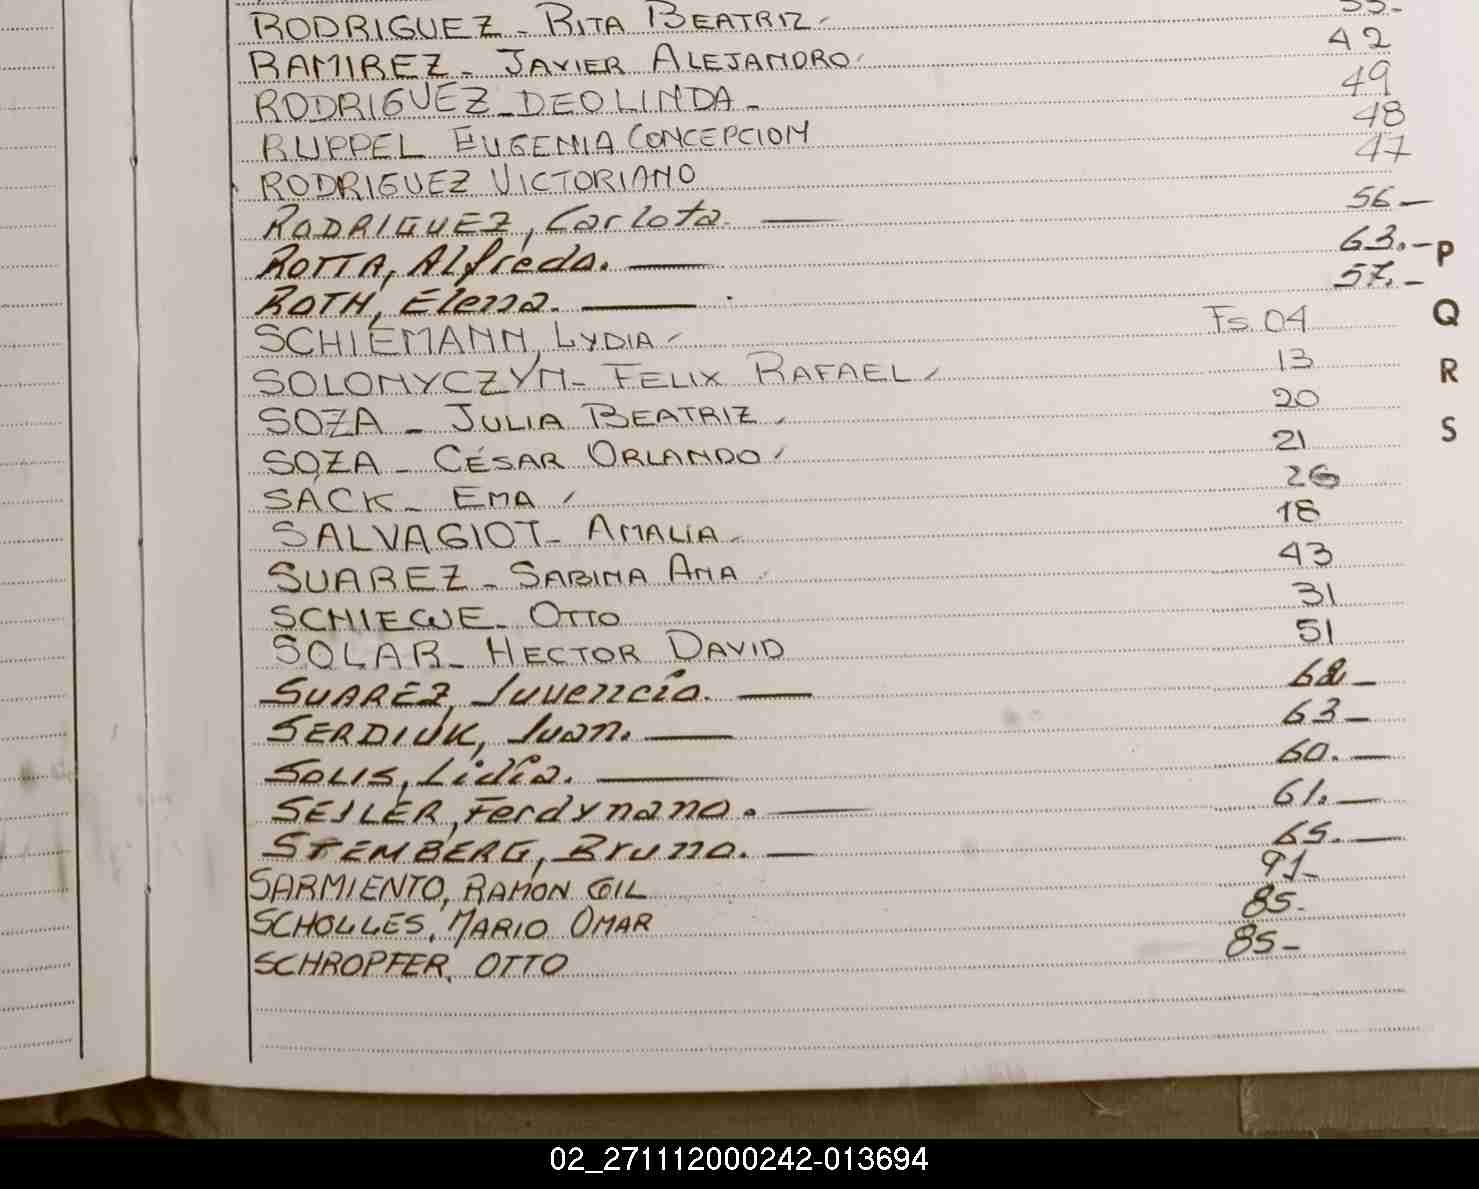 RODRIGUEZ - RITA BEATRIZ 55-
RAMIREZ - JAVIER ALEJANDRO 42
RODRIGUEZ - DEOLINDA - 49
RUPPEL EUGENIA CONCEPCION 48
RODRIGUEZ VICTORIANO 47
RODRIGUEZ, Carlota. — 56-
ROTTA, Alfredo. — 63.-
ROTH, Elena. — 57.-
SCHIEMANN, LYDIA Fs. 04
SOLONYCZYN - FELIX RAFAEL 13
SOZA - JULIA BEATRIZ 20
SOZA - CÉSAR ORLANDO 21
SACK - EMA 26
SALVAGIOT - AMALIA 18
SUAREZ - SABINA ANA 43
SCHIEWE - OTTO 31
SOLAR - HECTOR DAVID 51
SUAREZ, Juvencia. — -
SERDIUK, Juan. — 63-
SOLIS, Lidia. — 60.-
SEILER, Ferdynand. — 61.-
STEMBERG, Bruno. — 65.-
SARMIENTO, RAMON GIL 91-
SCHOLLES, MARIO OMAR 85-
SCHROPFER, OTTO 85-
P
Q
R
S
02_271112000242-013694